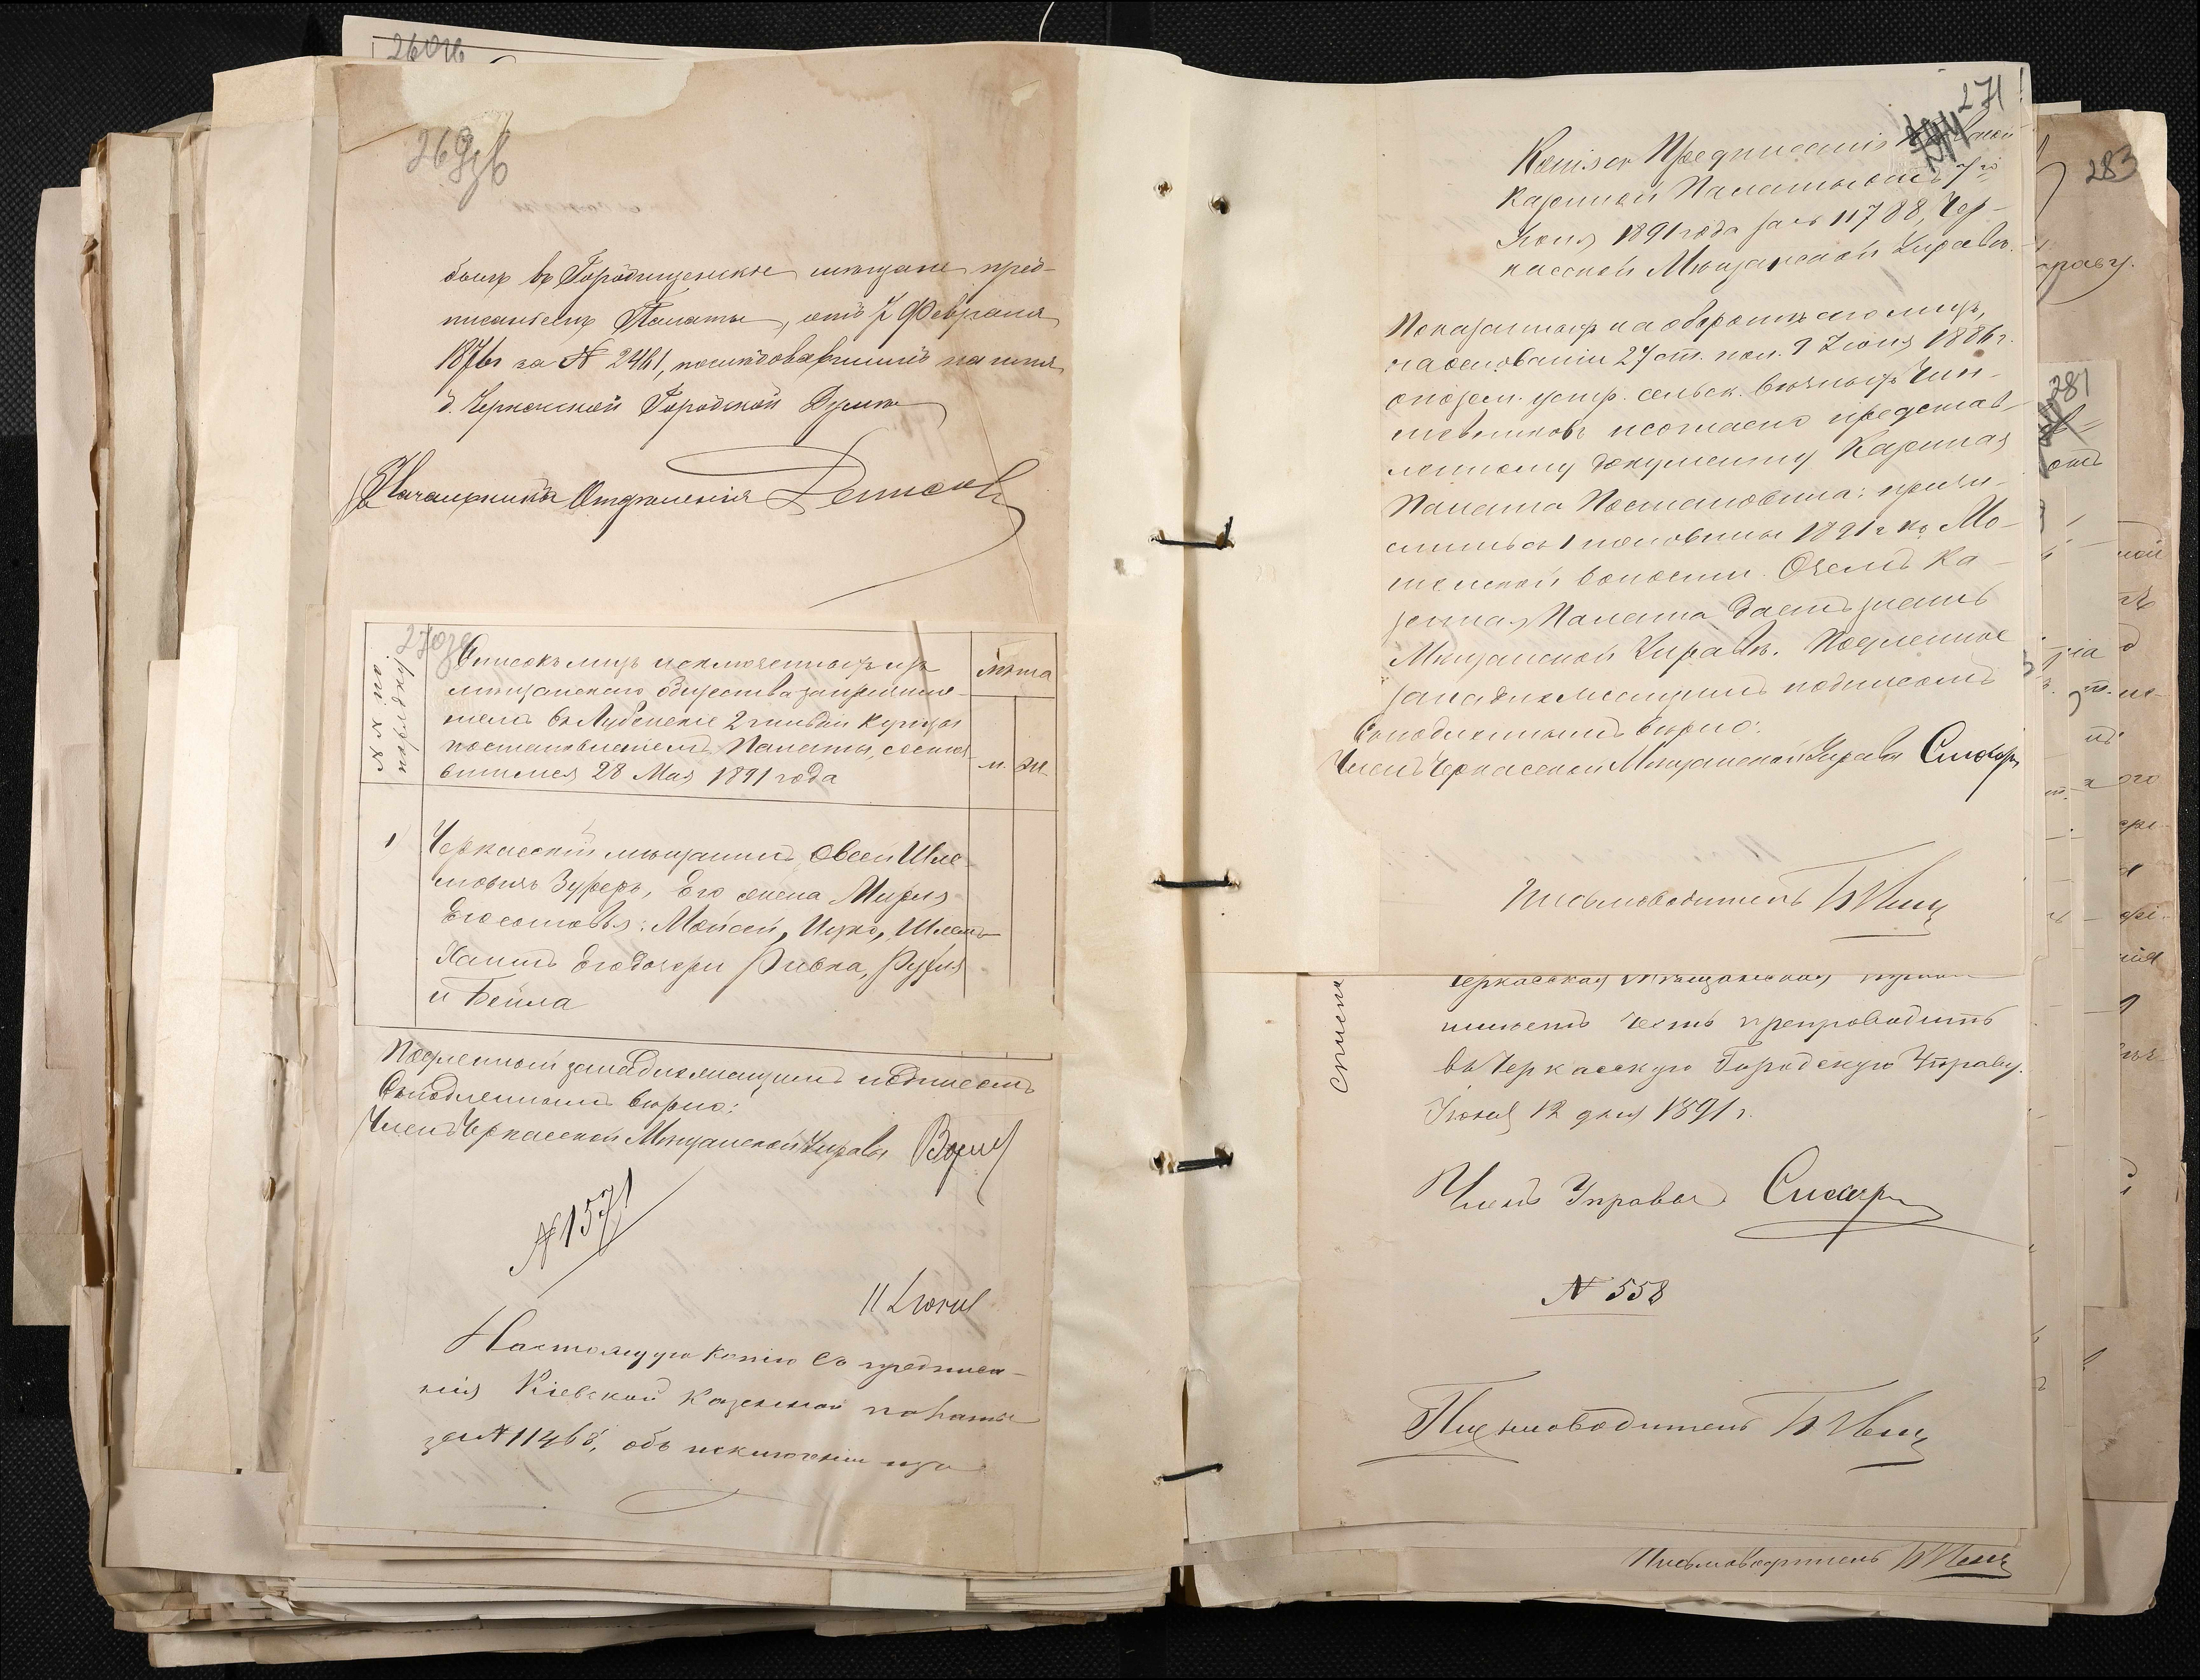 260зв
269зв
былъ въ Городищенскіе мѣщане пред-
писаніемъ Палаты, отъ 7 Февраля
1876г за № 2461, послѣдовавшимъ на имя
б. Черкасской Городской Думы
Начальникъ Отдѣленія
270зв
№№ по
порядку
Списокъ лицъ исключенныхъ изъ
мѣщанскаго общества за причисле-
ніемъ въ Лубенскіе 2 гильдіи купцы
постановленіемъ Палаты, состояв-
шимся 28 Мая 1891 года
лѣта
м. ж.
1
Черкасскій мѣщанинъ Овсей Шле-
мовичъ Зуферъ, Его жена Мирля
Его сыновья: Мойсей, Ицко, Шлема
Хаимъ Его дочери Ривка, Рухля
и Бейла
Подленный за надлежащимъ подписомъ
Съ подленнымъ вѣрно:
Членъ Черкасской Мѣщанской Управы
№ 1571
11 Іюня
Настоящую копію съ предписа-
нія Кіевской Казенной палаты
за № 11468, объ исключеніи изъ
271
Копія съ Предписанія
Казенной Палаты отъ 7го
Іюня 1891 года за № 11788, Чер-
касской Мѣщанской Управѣ.
Показанныхъ на оборотѣ сего лицъ,
на основаніи 27 ст. пол. 9 Іюня 1886 г.
о позем. устр. сельск. вѣчныхъ Чин-
шевиковъ и согласно представ-
ленному документу Казенная
Палата Постановила: причи-
слить съ 1 половины 1891 г къ Мо-
волости. О чемъ Ка-
зенная Палата даетъ знать
Мѣщанской Управѣ. Подленное
за надлежащимъ подписомъ
Съ подленнымъ вѣрно:
Членъ Черкасской Мѣщанской Управы
Письмоводитель
Списк
Черкасская Мѣщанская Управа
имѣетъ честь препроводить
въ Черкасскую Городскую Управу.
Іюня 12 дня 1891 г.
Членъ Управы
№ 558
Письмоводитель
Письмоводитель
283
281